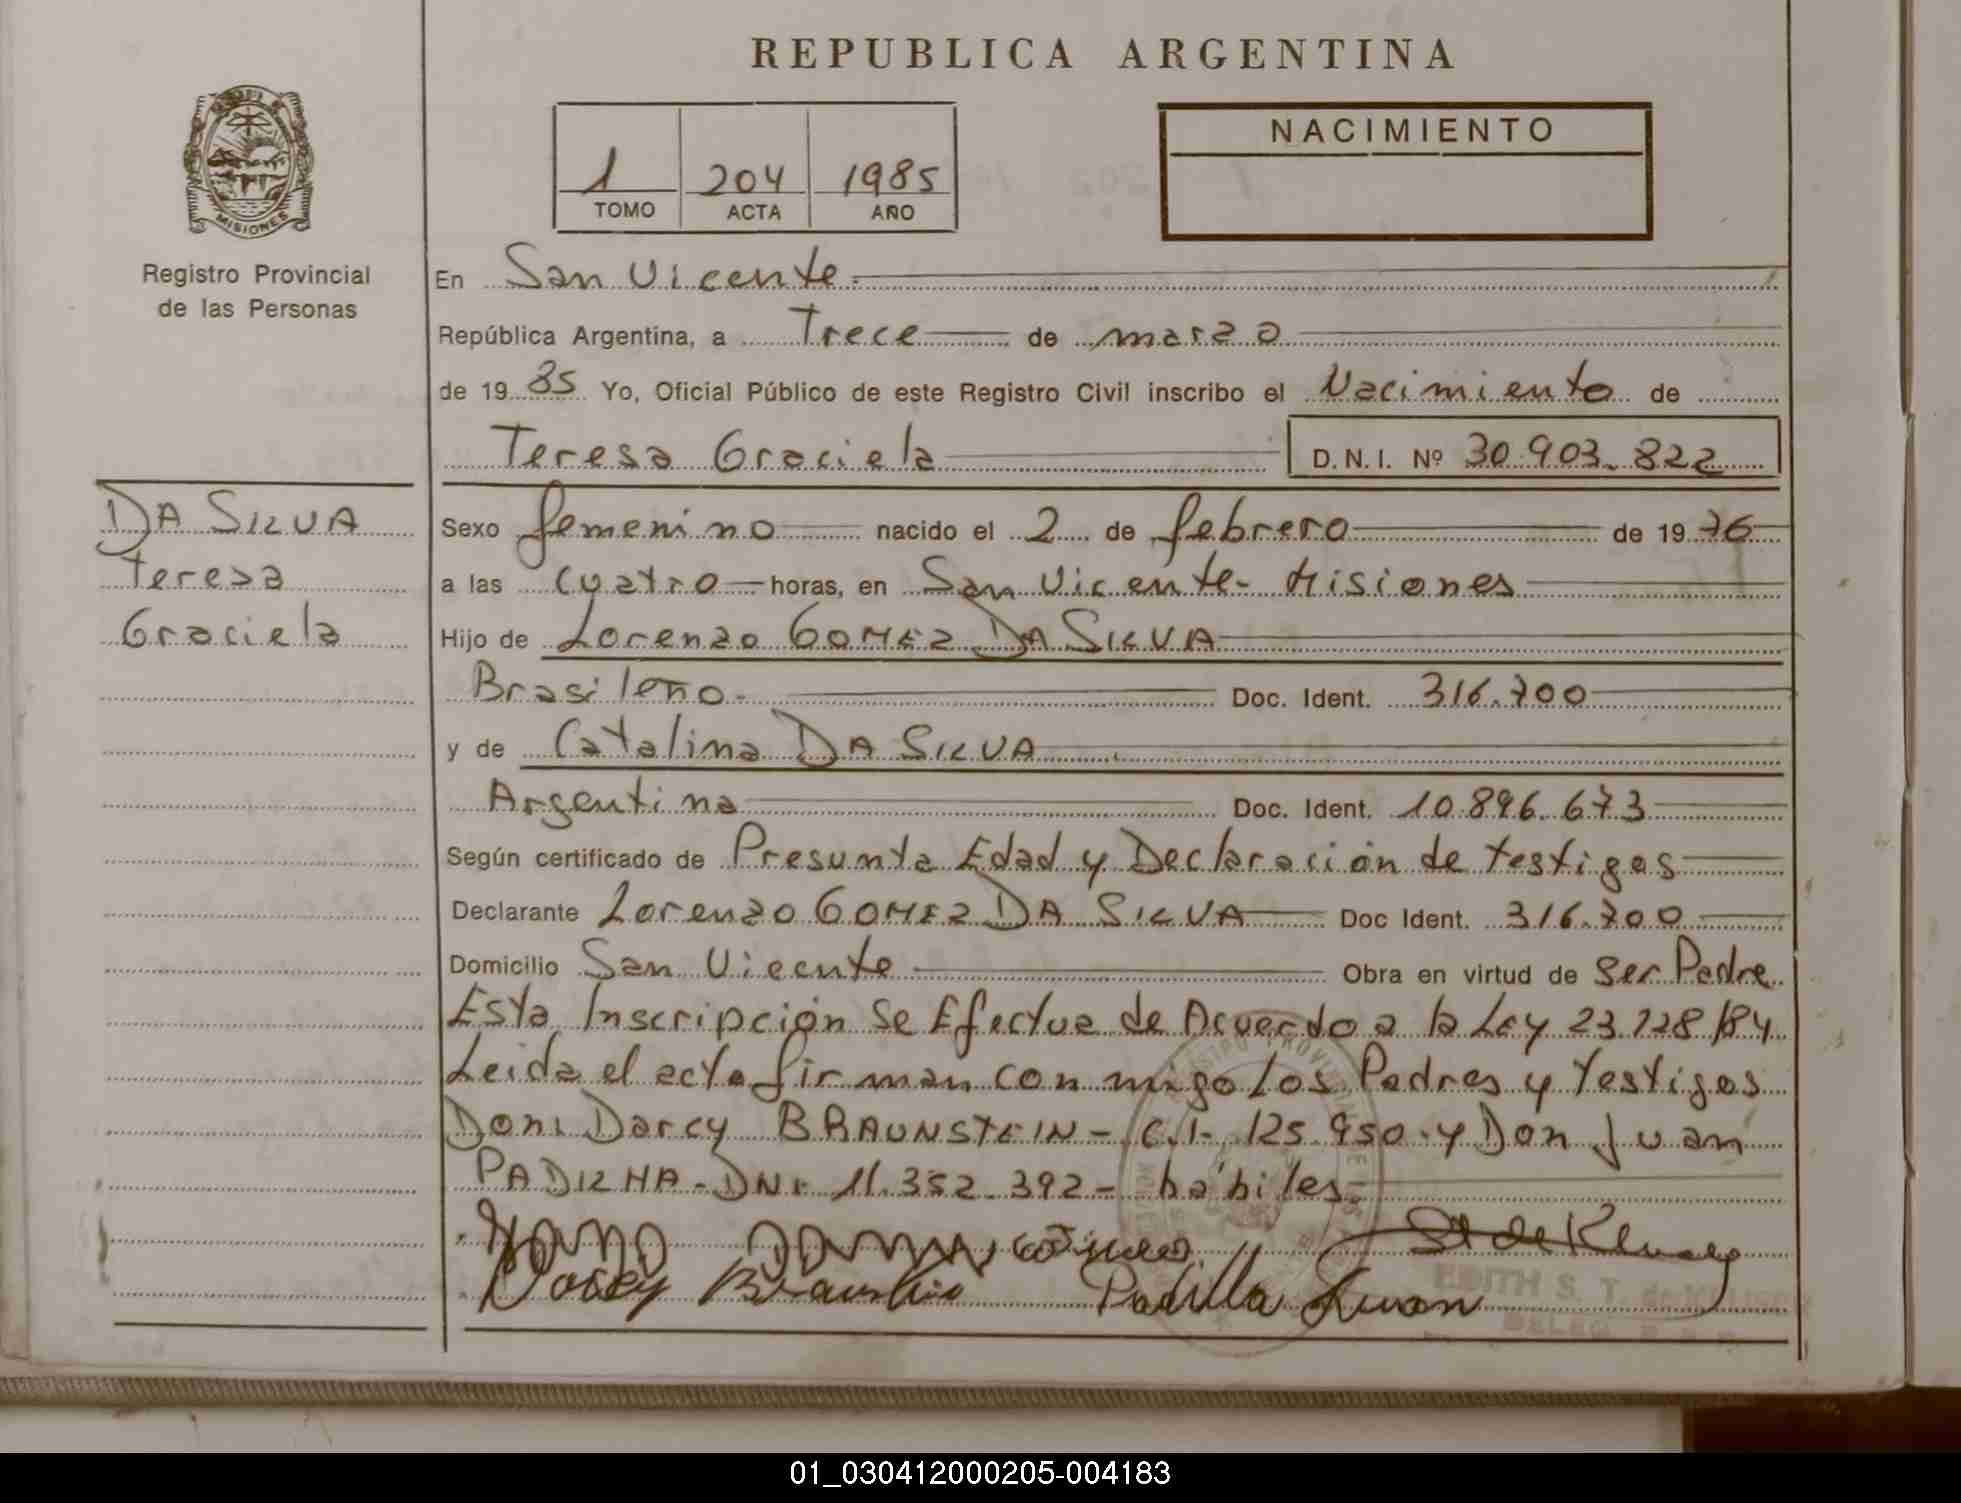 REPUBLICA ARGENTINA
MISIONES
Registro Provincial
de las Personas
1 TOMO
204 ACTA
1985 AÑO
NACIMIENTO
En San Vicente.
República Argentina, a Trece de marzo
de 19 85 Yo, Oficial Público de este Registro Civil inscribo el Nacimiento de
Teresa Graciela D.N.I. Nº 30.903.822
DA SILVA
Teresa
Graciela
Sexo femenino nacido el 2 de febrero de 19 76
a las cuatro horas, en San Vicente- Misiones
Hijo de Lorenzo GOMEZ DA SILVA
Brasileño. Doc. Ident. 316.700
y de Catalina DA SILVA
Argentina Doc. Ident. 10.896.673
Según certificado de Presunta Edad y Declaración de testigos
Declarante Lorenzo GOMEZ DA SILVA Doc Ident. 316.700
Domicilio San Vicente Obra en virtud de Ser Padre
Esta Inscripción Se Efectua de Acuerdo a la Ley 23.128/84
Leida el acta firman con migo Los Padres y testigos
Don: Darcy BRAUNSTEIN - C.I. 125.950 y Don Juan
PADILHA - DNI 11.352.392 - hábiles.
Padilla Juan
EDITH S. T. de
01_030412000205-004183